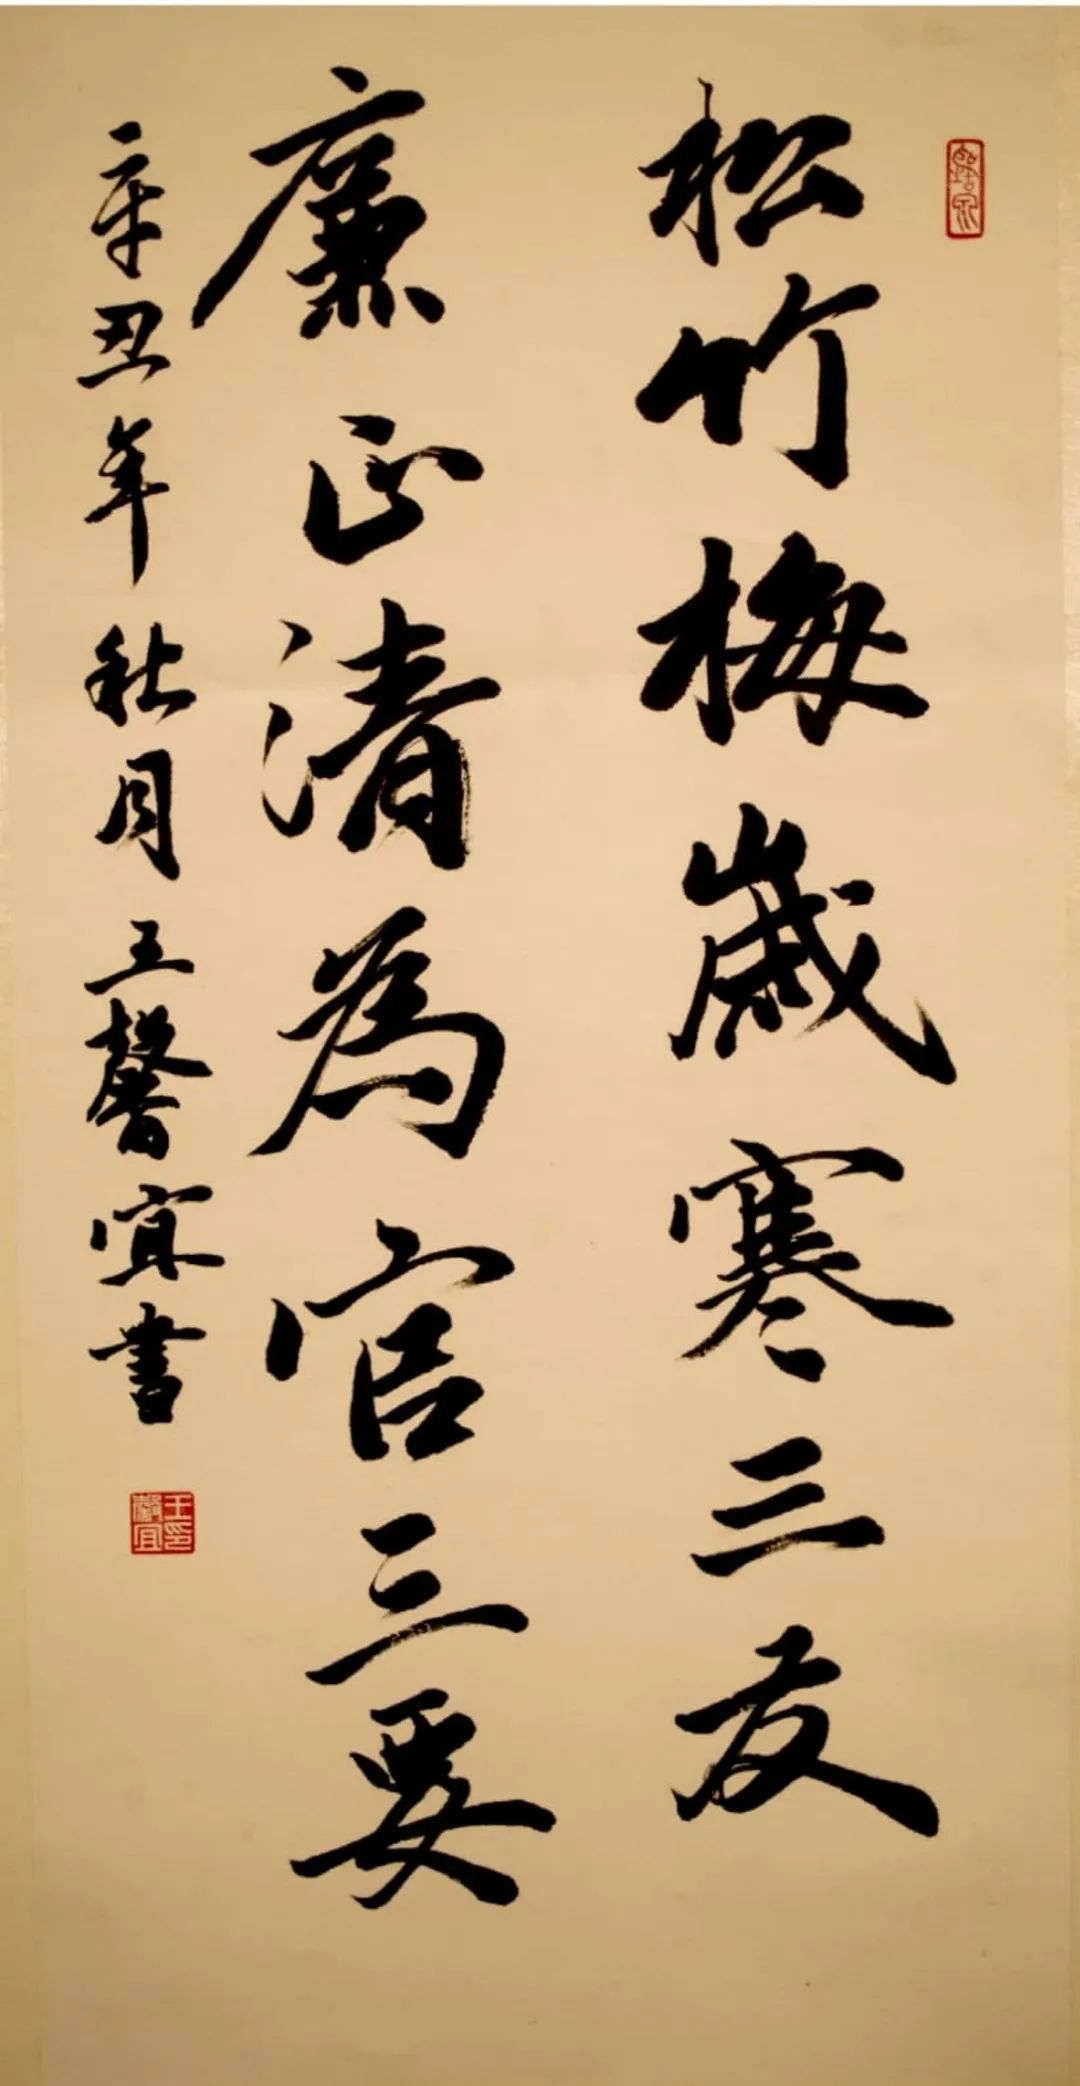 松竹梅歲寒三友
廉正清為官三要
辛丑年秋月王馨宜書
王馨宜印